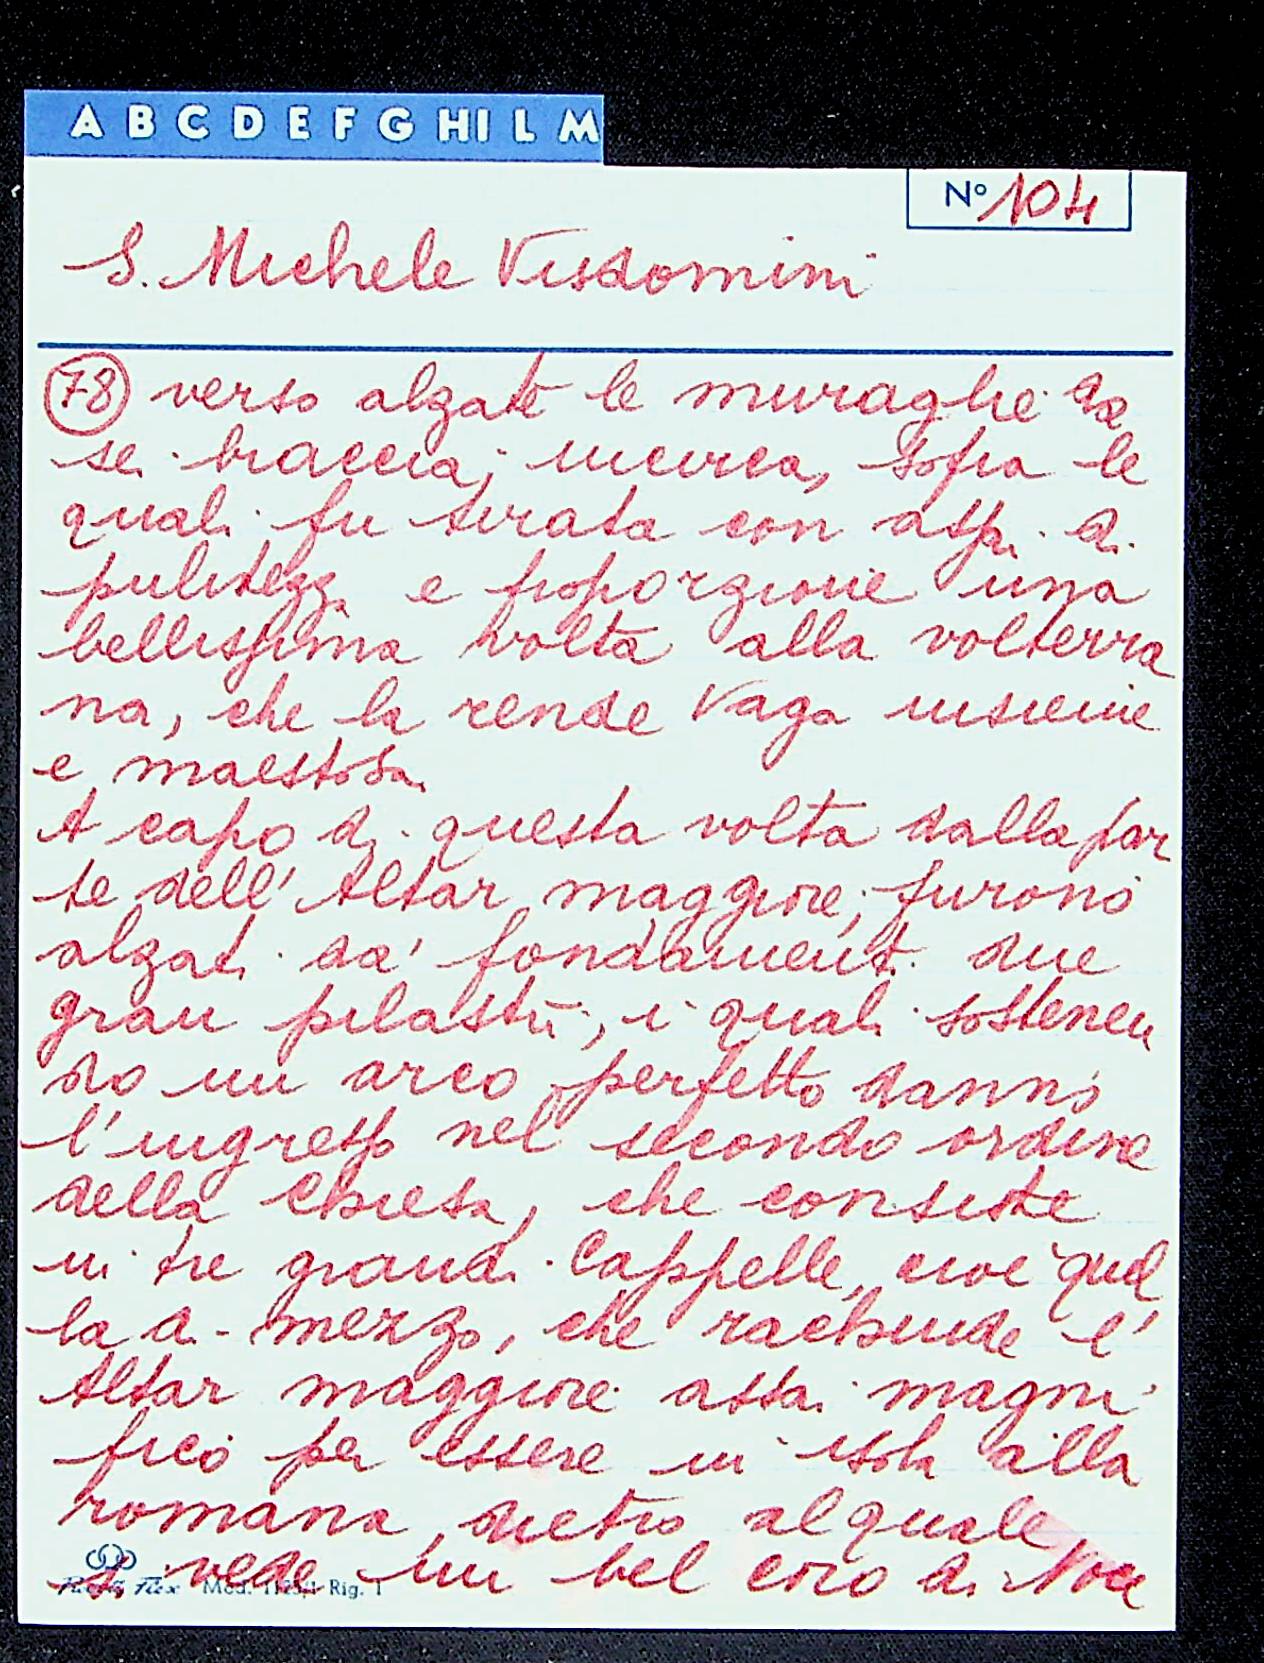 A B C D E F G HI L M
N° 104
S. Michele Visdomini
(78) verso alzate le muraglie da
sei braccia, incirca, sopra le
quali fu tirata con assai di
pulitezza e proporzione una
bellissima volta alla volterra
na, che la rende vaga insieme
e maestosa
A capo di questa volta dalla par
te dell' Altar maggiore, furono
alzati da' fondamenti due
gran pilastri, i quali sostenen
do un arco perfetto danno
l'ingresso nel secondo ordine
della Chiesa, che consiste
in tre grandi Cappelle, cioè quel
la di mezzo, che rachiude l'
Altar maggiore assai magni
fico per essere in isola alla
romana, dietro al quale
si vede un bel coro di Noce
Mod. 1125/1 Rig. 1